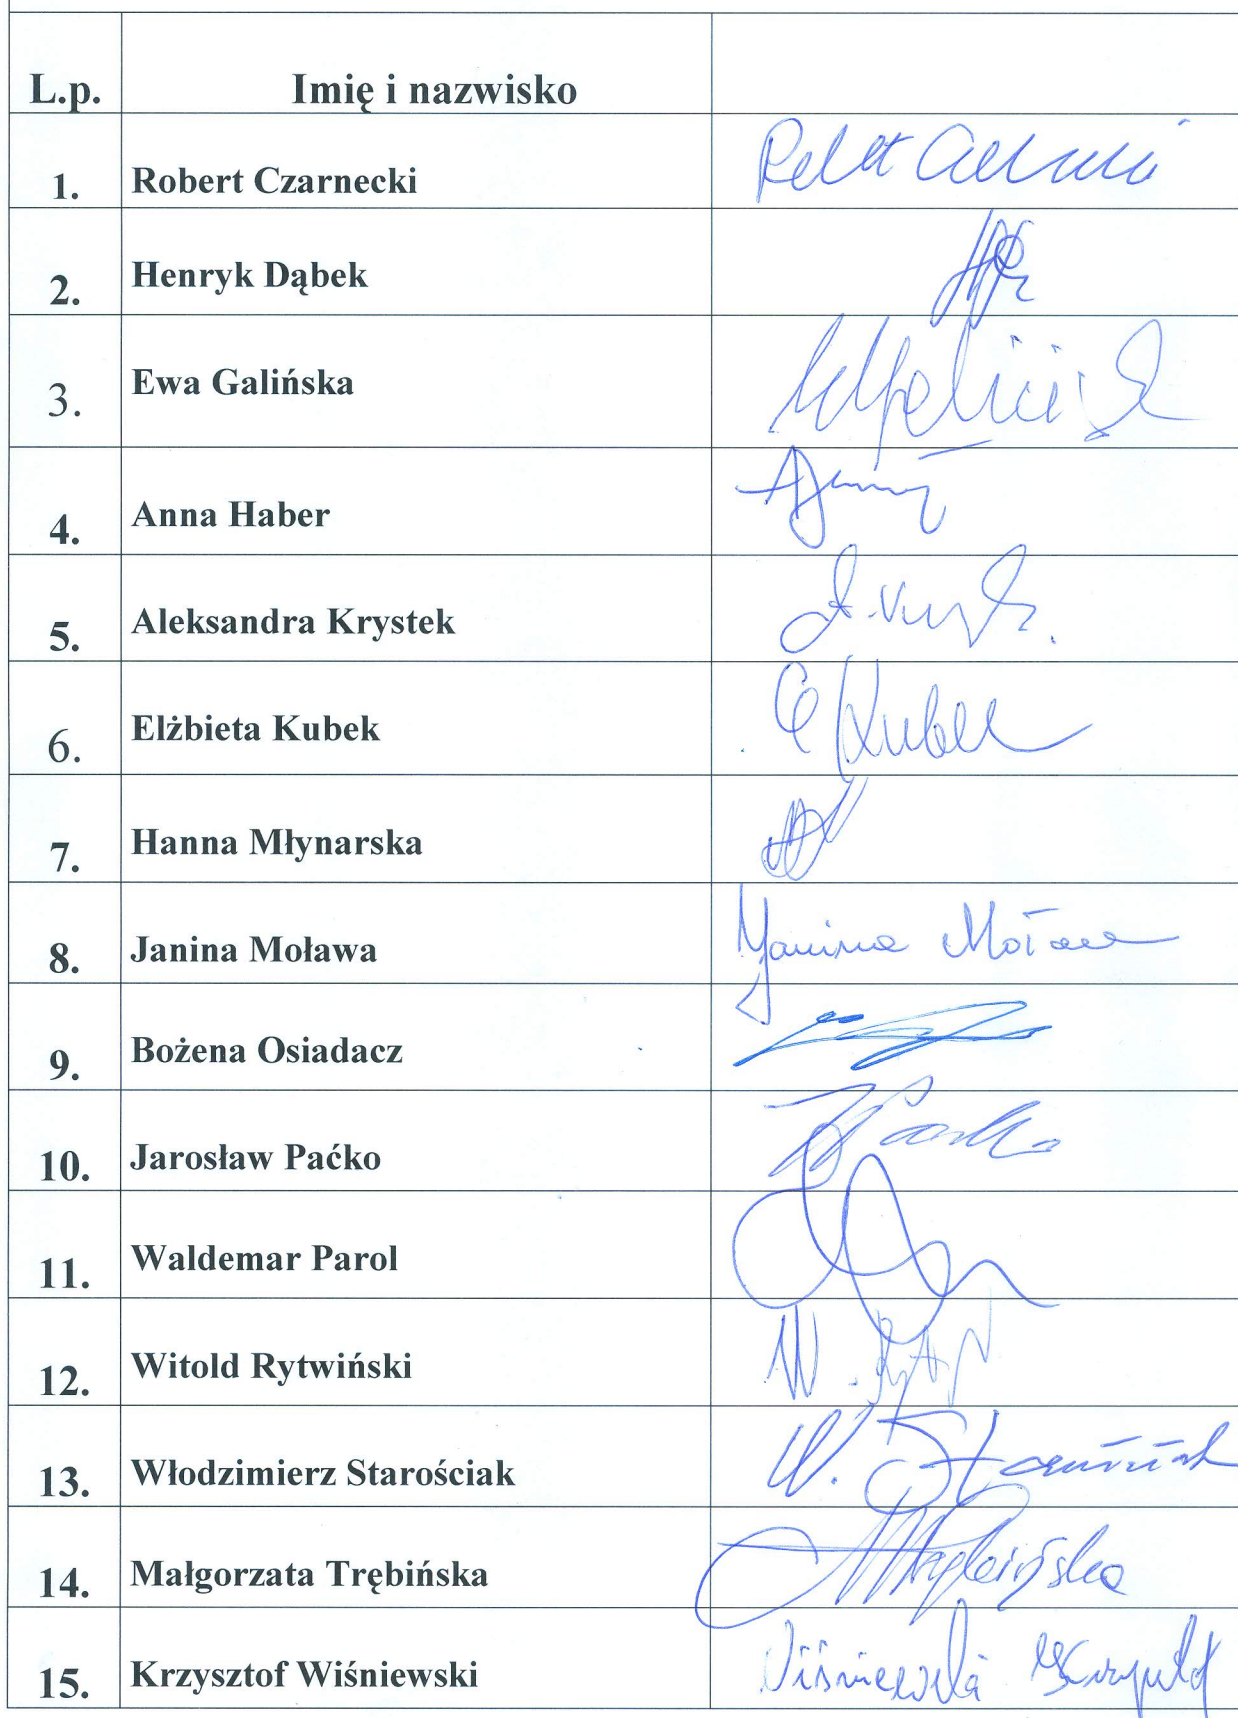 L.p. Imię i nazwisko
1. Robert Czarnecki
2. Henryk Dąbek
3. Ewa Galińska
4. Anna Haber
5. Aleksandra Krystek
6. Elżbieta Kubek E Kubek
7. Hanna Młynarska
8. Janina Moława Janina Moława
9. Bożena Osiadacz
10. Jarosław Paćko
11. Waldemar Parol
12. Witold Rytwiński
13. Włodzimierz Starościak W. Starościak
14. Małgorzata Trębińska
15. Krzysztof Wiśniewski Wiśniewski Krzysztof